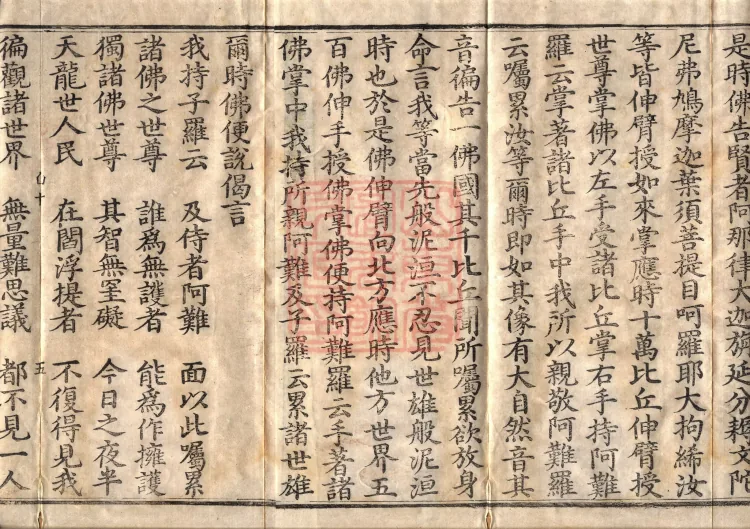 是時佛告賢者阿那律大迦旃延分耨文陀
尼弗鳩摩迦葉須菩提目呵羅耶大拘絺汝
等皆伸臂授如來掌應時十萬比丘伸臂授
世尊掌佛以左手受諸比丘掌右手持阿難
羅云掌著諸比丘手中我所以親敬阿難羅
云囑累汝等爾時即如其像有大自然音其
音徧告一佛國其千比丘聞所囑累欲放身
命言我等當先般泥洹不忍見世雄般泥洹
時也於是佛伸臂向北方應時他方世界五
百佛伸手授佛掌佛便持阿難羅云手著諸
佛掌中我持所親阿難及子羅云累諸世雄
爾時佛便說偈言
我持子羅云　及侍者阿難　面以此囑累
諸佛之世尊　誰為無護者　能為作擁護
獨諸佛世尊　其智無罣礙　今日之夜半
天龍世人民　在閻浮提者　不復得見我
十　五
徧觀諸世界　無量難思議　都不見一人